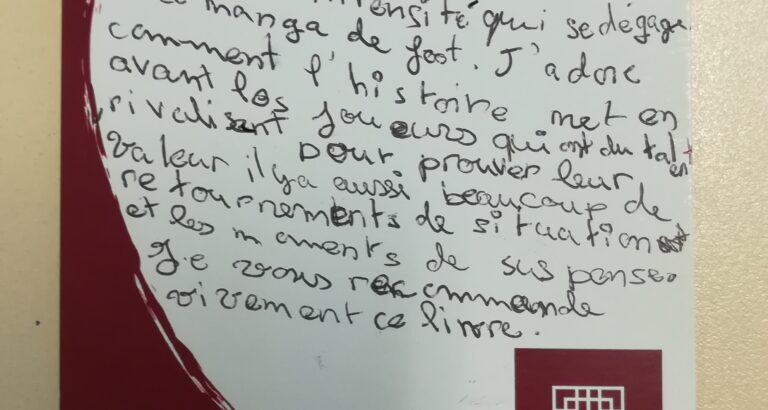 manga intensité qui se dégage
de foot. J'adore
comment l'histoire met en
avant les joueurs qui ont du talent
rivalisent pour prouver leur
valeur il y a aussi beaucoup de
retournements de situation
et les moments de suspense.
Je vous recommande
vivement ce livre.